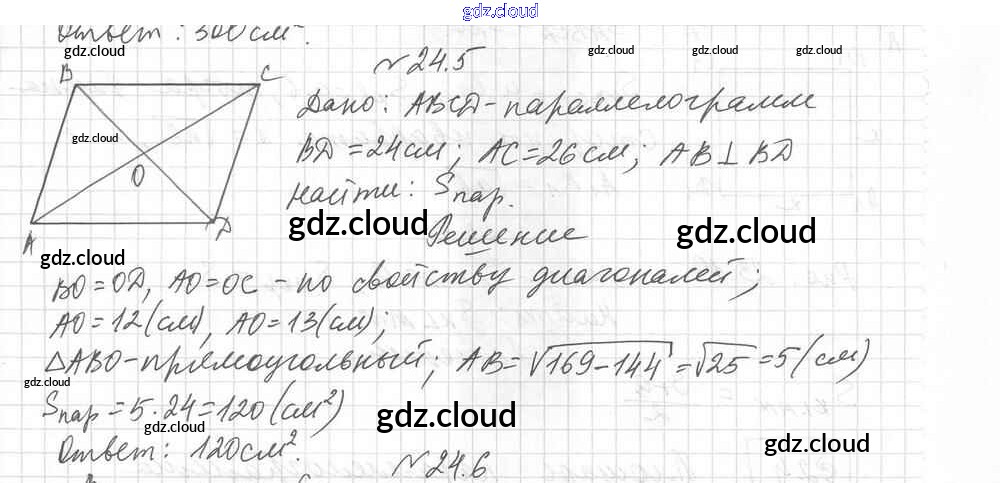 gdz.cloud
Ответ: 300 см².
gdz.cloud
gdz.cloud
№24.5
B C
Дано: ABCD - параллелограмм
gdz.cloud
BD = 24 см; AC = 26 см; AB ⊥ BD
O
Найти: Sпар.
A D
gdz.cloud gdz.cloud
Решение
gdz.cloud
BO = OD, AO = OC - по свойству диагоналей;
AO = 12 (см), AO = 13 (см);
gdz.cloud gdz.cloud
△ABO - прямоугольный; AB = √169-144 = √25 = 5 (см)
gdz.cloud
Sпар = 5 · 24 = 120 (см²)
gdz.cloud
gdz.cloud
Ответ: 120 см².
gdz.cloud
№24.6